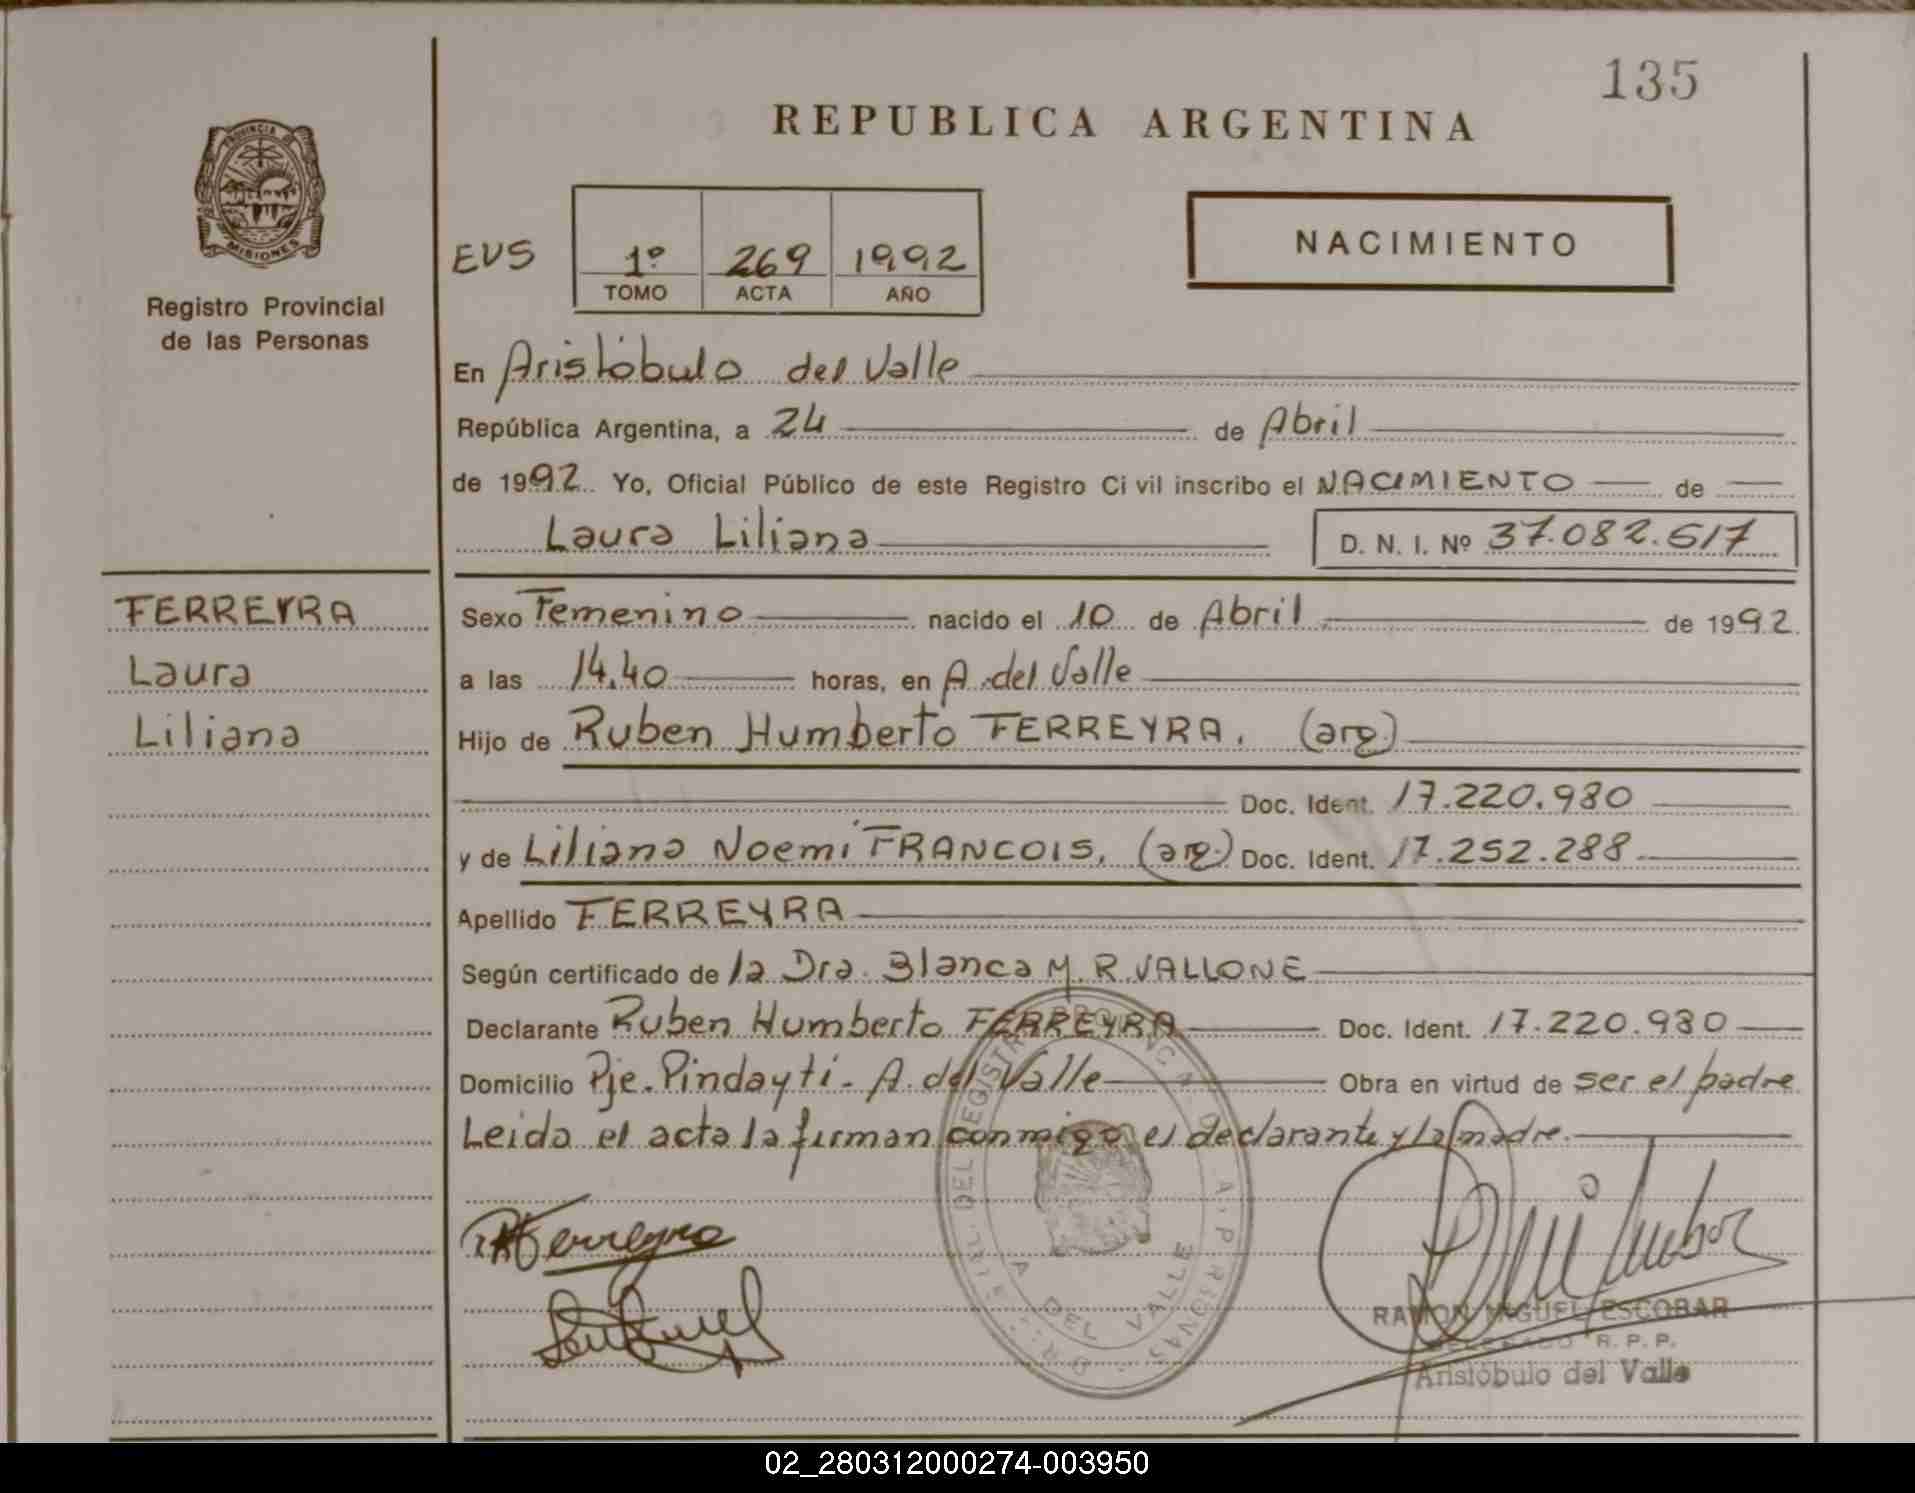 135
REPUBLICA ARGENTINA
PROVINCIA DE
MISIONES
Registro Provincial
de las Personas
EVS
1º 269 1992
TOMO ACTA AÑO
NACIMIENTO
En Aristóbulo del Valle
República Argentina, a 24 de Abril
de 1992. Yo, Oficial Público de este Registro Ci vil inscribo el NACIMIENTO de
Laura Liliana D. N. I. Nº 37.082.617
FERREYRA
Laura
Liliana
Sexo Femenino nacido el 10 de Abril de 1992.
a las 14.40 horas, en A. del Valle
Hijo de Ruben Humberto FERREYRA. (arg.)
Doc. Ident. 17.220.980
y de Liliana Noemí FRANCOIS, (arg.) Doc. Ident. 17.252.288
Apellido FERREYRA
Según certificado de la Dra. Blanca M. R. VALLONE
Declarante Ruben Humberto FERREYRA Doc. Ident. 17.220.980
Domicilio Pje. Pindaytí - A. del Valle Obra en virtud de ser el padre
Leida el acta la firman conmigo el declarante y la madre.
RHFerreyra
A DEL VALLE
RAMON MIGUEL ESCOBAR
DELEGADO R. P. P.
Aristóbulo del Valle
02_280312000274-003950